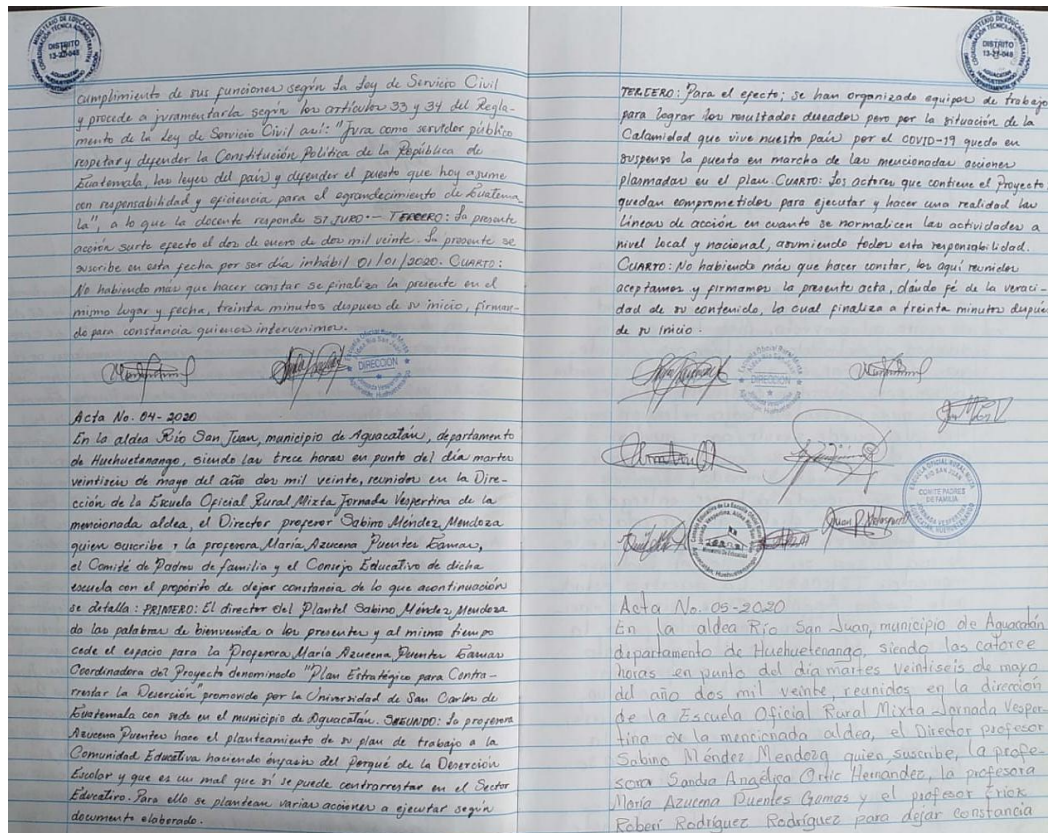 MINISTERIO DE EDUCACIÓN
DISTRITO
13-27-048
AGUACATÁN
cumplimiento de sus funciones según la Ley de Servicio Civil
y procede a juramentarla según los artículos 33 y 34 del Regla-
mento de la Ley de Servicio Civil así: "Jura como servidor público
respetar y defender la Constitución Política de la República de
Guatemala, las leyes del país y defender el puesto que hoy asume
con responsabilidad y eficiencia para el engrandecimiento de Guatema
la", a lo que la docente responde SI JURO.- TERCERO: La presente
acción surte efecto el dos de enero de dos mil veinte. La presente se
suscribe en esta fecha por ser día inhábil 01/01/2020. CUARTO:
No habiendo más que hacer constar se finaliza la presente en el
mismo lugar y fecha, treinta minutos despues de su inicio, firman-
do para constancia quienes intervenimos.
DIRECCIÓN
Acta No. 04-2020
En la aldea Río San Juan, municipio de Aguacatán, departamento
de Huehuetenango, siendo las trece horas en punto del día martes
veintiseis de mayo del año dos mil veinte, reunidos en la Dire-
cción de la Escuela Oficial Rural Mixta Jornada Vespertina de la
mencionada aldea, el Director profesor Sabino Méndez Mendoza
quien suscribe, la profesora María Azucena Puentes Gamas,
el Comité de Padres de familia y el Consejo Educativo de dicha
escuela con el propósito de dejar constancia de lo que acontinuación
se detalla: PRIMERO: El director del Plantel Sabino Méndez Mendoza
da las palabras de bienvenida a los presentes y al mismo tiempo
cede el espacio para la Profesora María Azucena Puentes Gamas
Coordinadora del Proyecto denominado "Plan Estratégico para Contra-
rrestar la Deserción" promovido por la Universidad de San Carlos de
Guatemala con sede en el municipio de Aguacatán. SEGUNDO: La profesora
Azucena Puentes hace el planteamiento de su plan de trabajo a la
Comunidad Educativa haciendo énfasis del Porqué de la Deserción
Escolar y que es un mal que sí se puede contrarrestar en el Sector
Educativo. Para ello se plantean varias acciones a ejecutar según
documento elaborado.
MINISTERIO DE EDUCACIÓN
DISTRITO
13-27-048
AGUACATÁN
TERCERO: Para el efecto; se han organizado equipos de trabajo
para lograr los resultados deseados pero por la situación de la
Calamidad que vive nuestro país por el COVID-19 queda en
suspenso la puesta en marcha de las mencionadas acciones
plasmadas en el plan. CUARTO: Los actores que contiene el Proyecto,
quedan comprometidos para ejecutar y hacer una realidad las
Líneas de acción en cuanto se normalicen las actividades a
nivel local y nacional, asumiendo todos esta responsabilidad.
CUARTO: No habiendo más que hacer constar, los aquí reunidos
aceptamos y firmamos la presente acta, dando fé de la veraci-
dad de su contenido, la cual finaliza a treinta minutos después
de su inicio.
DIRECCIÓN
ESCUELA OFICIAL RURAL MIXTA
RIO SAN JUAN
COMITE PADRES
DE FAMILIA
JORNADA VESPERTINA
Ministerio De Educación
Acta No. 05-2020
En la aldea Río San Juan, municipio de Aguacatán
departamento de Huehuetenango, siendo las catorce
horas en punto del día martes veintiseis de mayo
del año dos mil veinte, reunidos en la dirección
de la Escuela Oficial Rural Mixta Jornada Vesper-
tina de la mencionada aldea, el Director profesor
Sabino Méndez Mendoza quien suscribe, la profe-
sora Sandra Angélica Ortíz Hernandez, la profesora
María Azucena Puentes Gamas y el profesor Erick
Roberí Rodríguez Rodríguez para dejar constancia